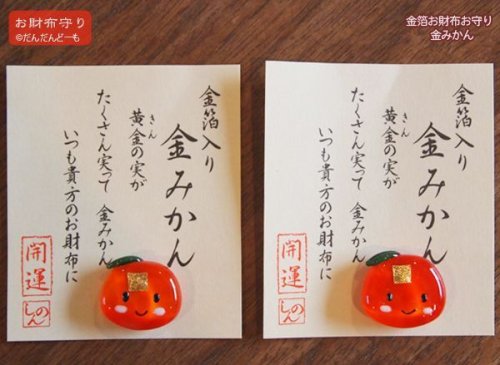 お財布守り
©だんだんどーも
金箔お財布お守り
金みかん
金箔入り
金みかん
きん
黄金の実が
たくさん実って 金みかん
いつも貴方のお財布に
開運
しのん
金箔入り
金みかん
きん
黄金の実が
たくさん実って 金みかん
いつも貴方のお財布に
開運
しのん